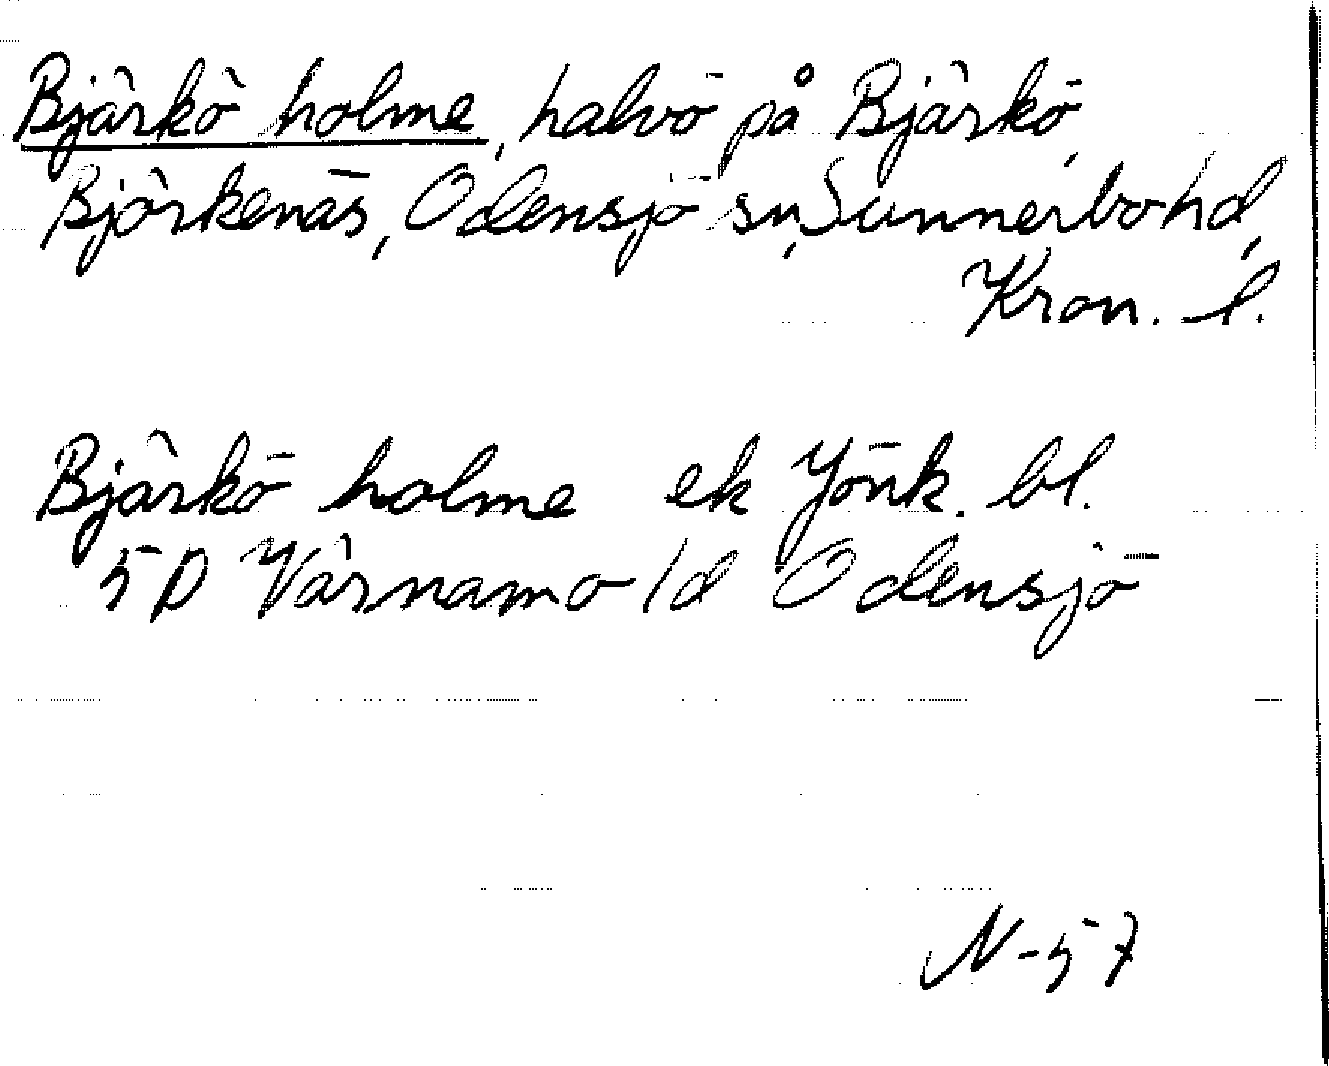 Bjärkö holme, halvö på Bjärkö,
Björkenäs, Odensjö sn, Sunnerbo hd,
Kron. l.
Bjärkö holme ek Jönk. bl.
5D Värnamo 1d Odensjö
N-57